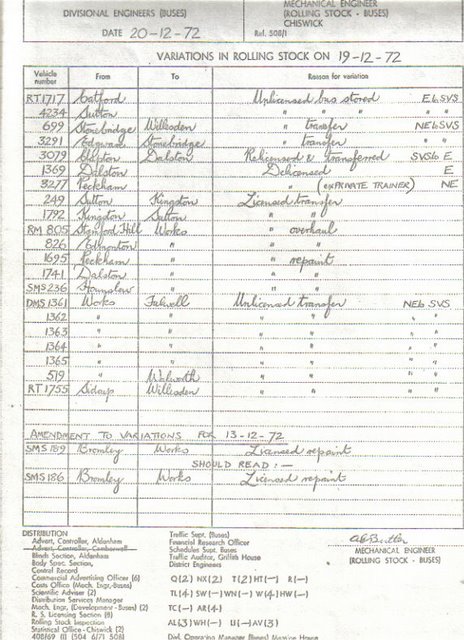 DIVISIONAL ENGINEERS (BUSES)
DATE 20-12-72
MECHANICAL ENGINEER
(ROLLING STOCK - BUSES)
CHISWICK
Ref. 508/1
VARIATIONS IN ROLLING STOCK ON 19-12-72
Vehicle number From To Reason for variation
RT1717 Catford Unlicensed bus stored E to SVS
4234 Sutton " " " " "
699 Stonebridge Willesden " transfer NE to SVS
3291 Edgware Stonebridge " transfer " "
3079 Clapton Dalston Relicensed & Transferred SVS to E
1369 Dalston Delicensed E
3277 Peckham " (EX PRIVATE TRAINER) NE
249 Sutton Kingston Licensed transfer
1792 Kingston Sutton " "
RM 805 Stamford Hill Works " overhaul
826 Edmonton " " "
1695 Peckham " " repaint
1741 Dalston " " "
SMS 236 Hounslow " " "
DMS 1361 Works Fulwell Unlicensed transfer NE to SVS
1362 " " " " " "
1363 " " " " " "
1364 " " " " " "
1365 " " " " " "
519 " Walworth " " " "
RT 1755 Sidcup Willesden " " " "
AMENDMENT TO VARIATIONS FOR 13-12-72
SMS 189 Bromley Works Licensed repaint
SHOULD READ :-
SMS 186 Bromley Works Licensed repaint
DISTRIBUTION
Advert. Controller, Aldenham
Advert. Controller, Camberwell
Blinds Section, Aldenham
Body Spec. Section,
Central Record
Commercial Advertising Officer (6)
Costs Office (Mech. Engr. Buses)
Scientific Adviser (2)
Distribution Services Manager
Mech. Engr. (Development - Buses) (2)
R. S. Licensing Section (8)
Rolling Stock Inspection
Statistical Office - Chiswick (2)
408/69 (I) (504 6/71 508)
Traffic Supt. (Buses)
Financial Research Officer
Schedules Supt. Buses
Traffic Auditor, Griffith House
District Engineers
Q(2) NX(2) T(2) HT(-) R(-)
TL(4) SW(-) WN(-) W(4) HW(-)
TC(-) AR(4)
AL(3) WH(-) U(-) AV(3)
Divl. Operating Manager (Buses) Manor House
MECHANICAL ENGINEER
(ROLLING STOCK - BUSES)